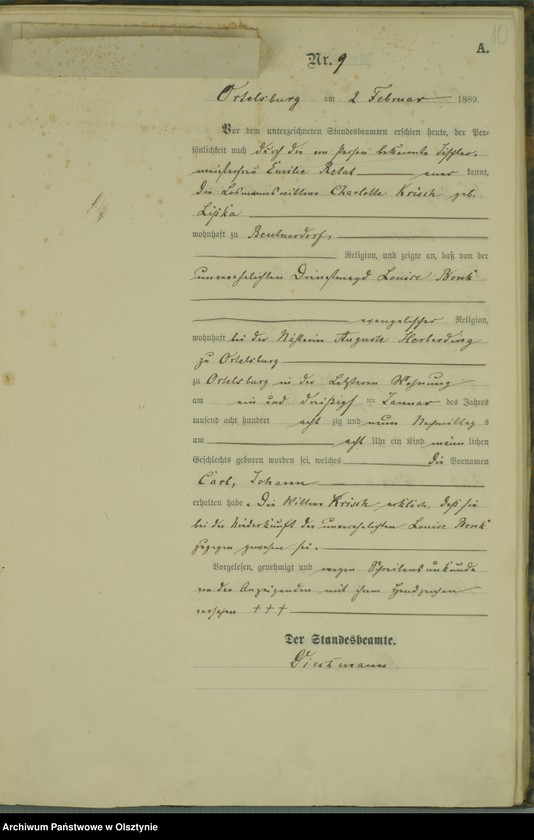 10
A.
Nr. 9
Ortelsburg am 2 Februar 1889
Vor dem unterzeichneten Standesbeamten erschien heute, der Per-
sönlichkeit nach durch die von Person bekannte Tischler-
meisterfrau Emilie Retat kannt,
die Losmannswittwe Charlotte Krisch geb.
Lipka
wohnhaft zu Beutnerdorf,
Religion, und zeigte an, daß von der
unverehelichten Dienstmagd Louise Bonk
evangelischer Religion,
wohnhaft bei der Nätherin Auguste Herberding
zu Ortelsburg
zu Ortelsburg in der Letzteren Wohnung
am ein und dreißigsten Januar des Jahres
tausend acht hundert acht zig und neun Nachmittag s
um acht Uhr ein Kind männ lichen
Geschlechts geboren worden sei, welches die Vornamen
Carl, Johann
erhalten habe. Die Wittwe Krisch erklärte, daß sie
bei der Niederkunft der unverehelichten Louise Bonk
zugegen gewesen sei.
Vorgelesen, genehmigt und wegen Schreibensunkunde
von der Anzeigenden mit ihrem Handzeichen
versehen +++
Der Standesbeamte.
Archiwum Państwowe w Olsztynie